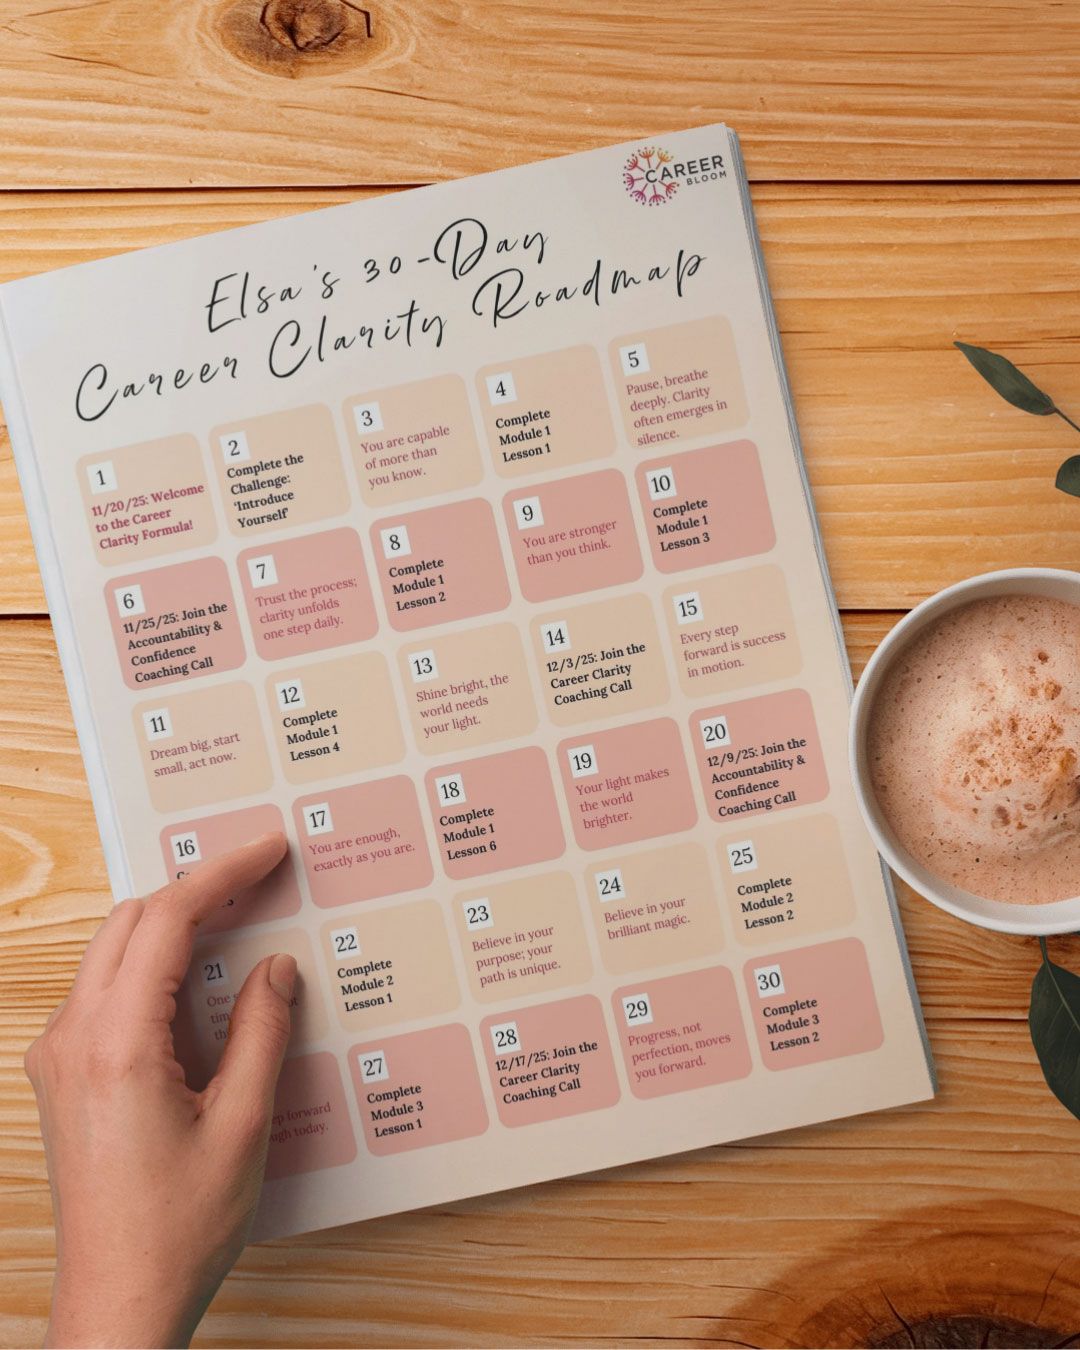 CAREER
BLOOM
Elsa's 30-Day
Career Clarity Roadmap
1
11/20/25: Welcome
to the Career
Clarity Formula!
2
Complete the
Challenge:
'Introduce
Yourself'
3
You are capable
of more than
you know.
4
Complete
Module 1
Lesson 1
5
Pause, breathe
deeply. Clarity
often emerges in
silence.
6
11/25/25: Join the
Accountability &
Confidence
Coaching Call
7
Trust the process;
clarity unfolds
one step daily.
8
Complete
Module 1
Lesson 2
9
You are stronger
than you think.
10
Complete
Module 1
Lesson 3
11
Dream big, start
small, act now.
12
Complete
Module 1
Lesson 4
13
Shine bright, the
world needs
your light.
14
12/3/25: Join the
Career Clarity
Coaching Call
15
Every step
forward is success
in motion.
16
17
You are enough,
exactly as you are.
18
Complete
Module 1
Lesson 6
19
Your light makes
the world
brighter.
20
12/9/25: Join the
Accountability &
Confidence
Coaching Call
21
One
22
Complete
Module 2
Lesson 1
23
Believe in your
purpose; your
path is unique.
24
Believe in your
brilliant magic.
25
Complete
Module 2
Lesson 2
forward
today.
27
Complete
Module 3
Lesson 1
28
12/17/25: Join the
Career Clarity
Coaching Call
29
Progress, not
perfection, moves
you forward.
30
Complete
Module 3
Lesson 2